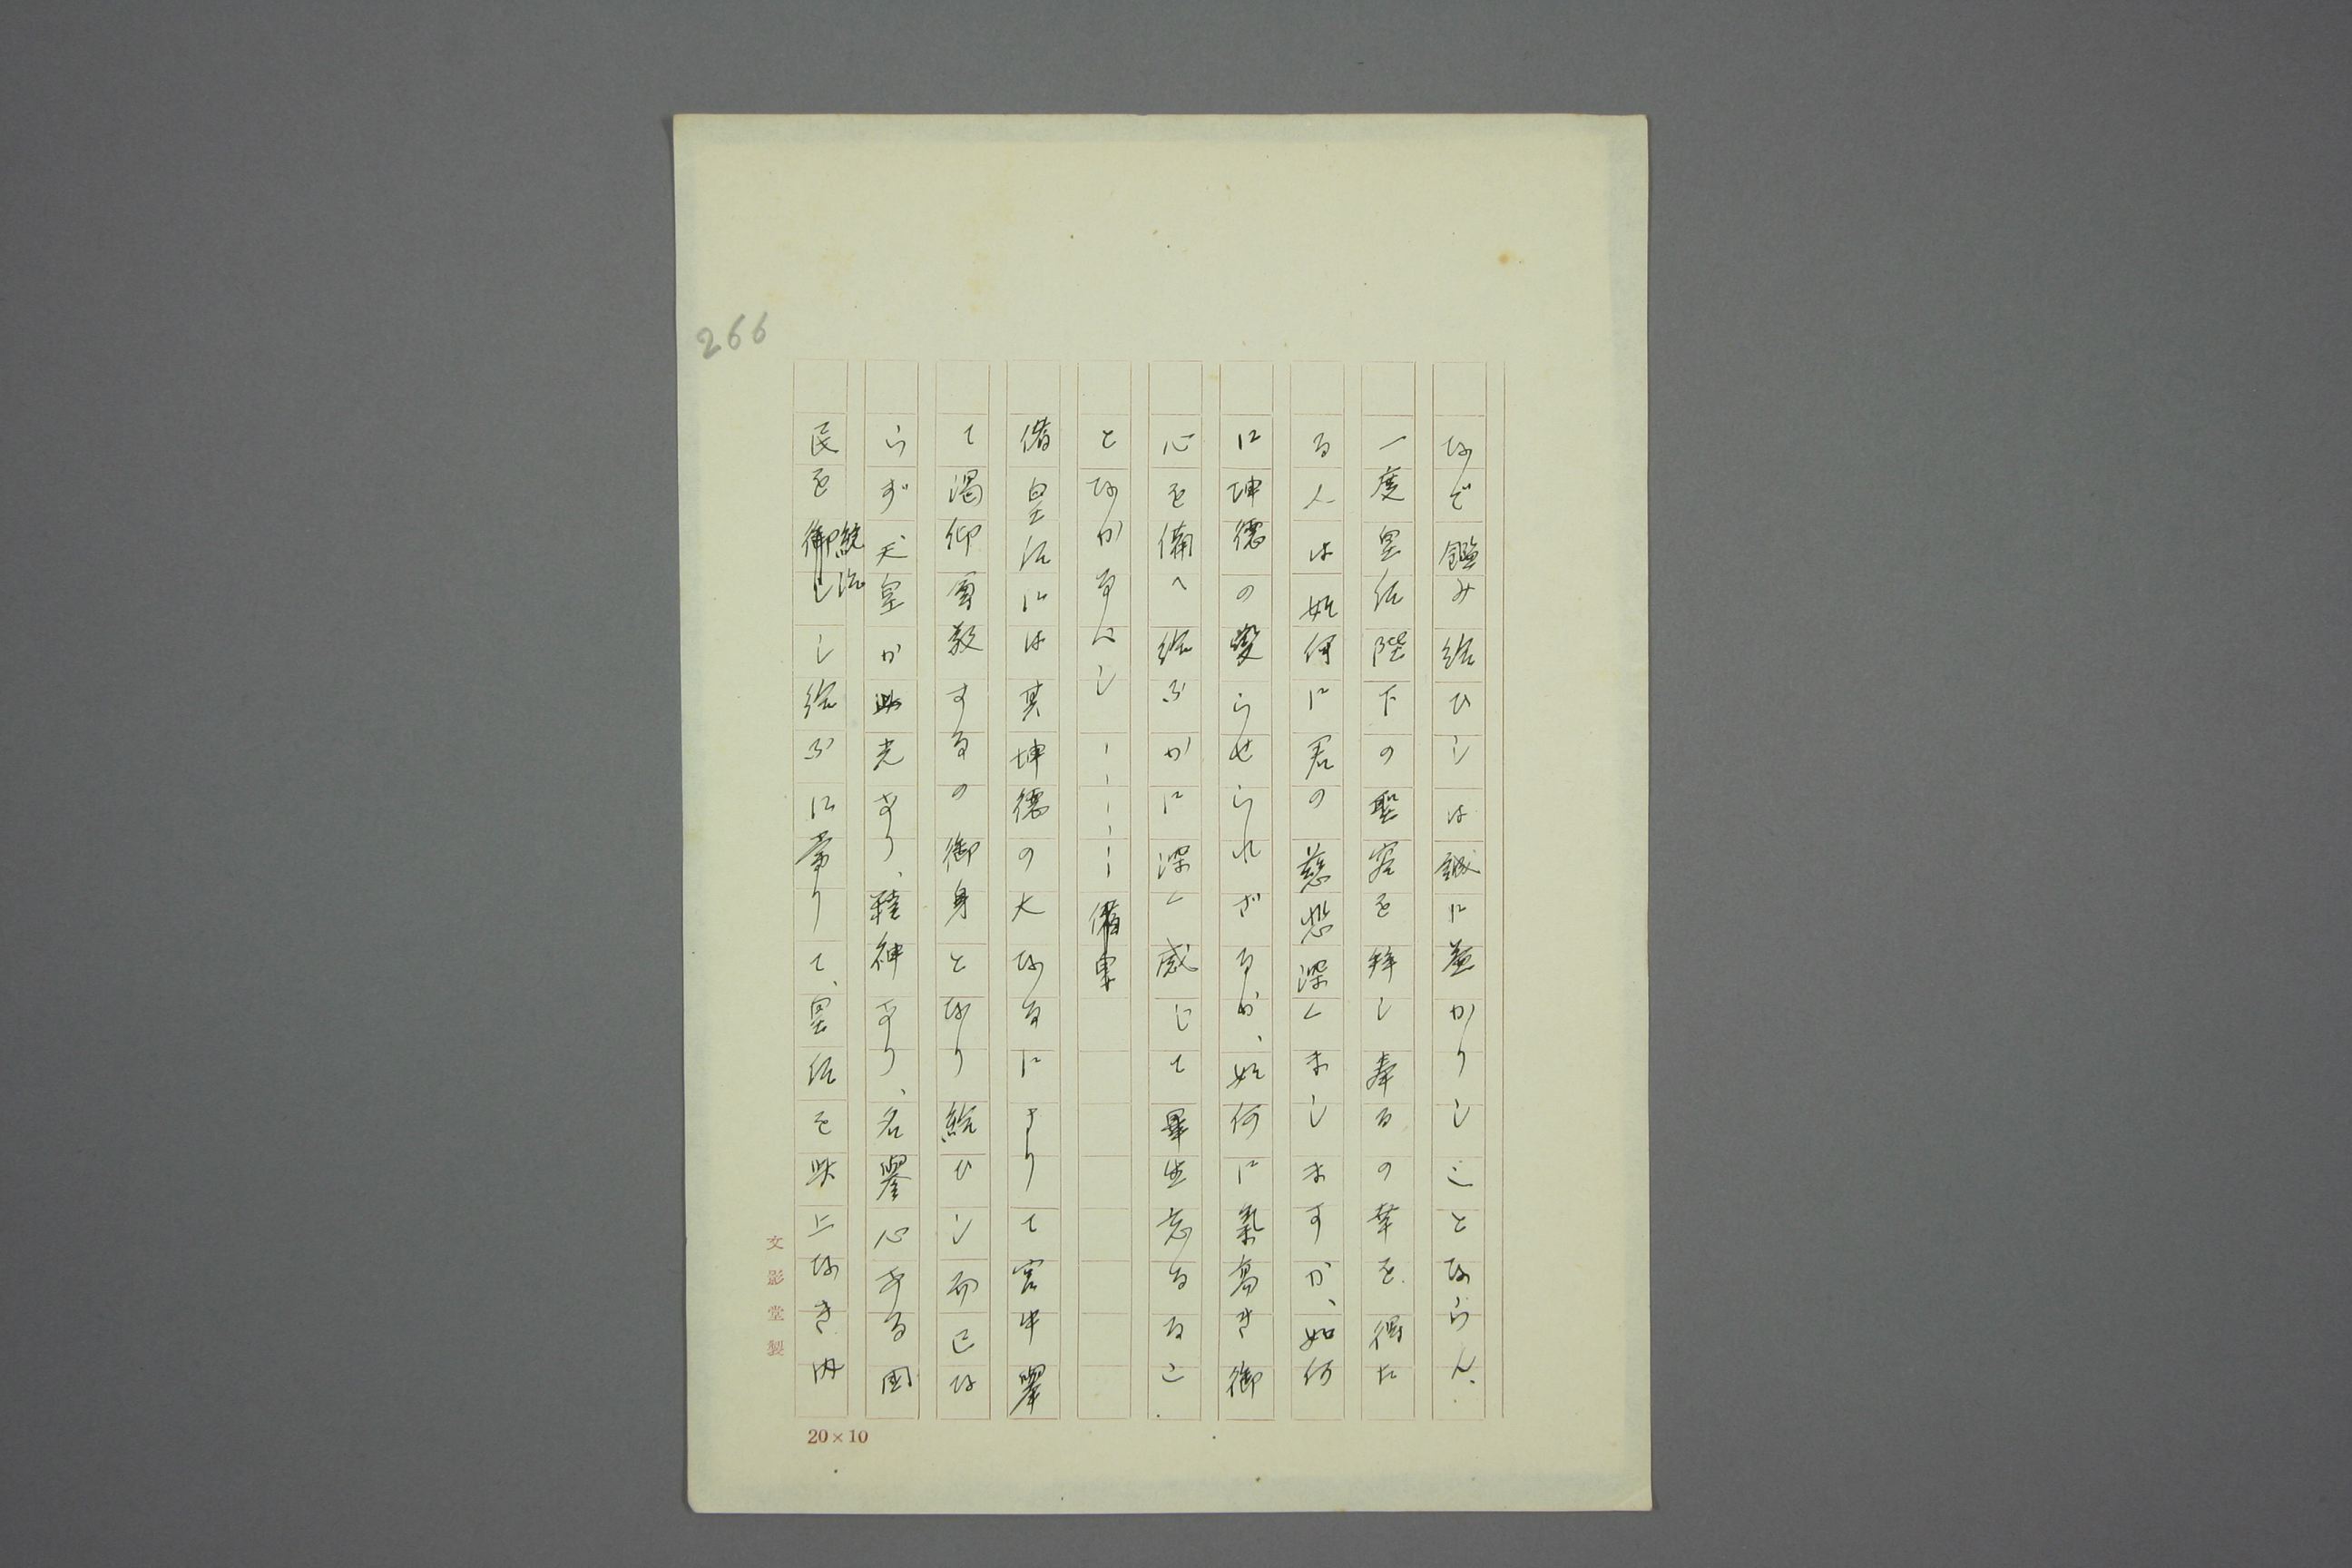 なで鑑み給ひしは誠に益かりしことならん、
一度皇后陛下の聖容を拝し奉るの幸を得た
る人は如何に君の慈悲深くましますか、如何
に坤徳の愛らせられざるか、如何に氣高き御
心を備へ給ふかに深く感じて畢生忘るるこ
となかるべし－－－－－－
偖皇后には其坤徳の大なるによりて宮中擧
て渇仰尊敬するの御身となり給ひし而已な
らず天皇が此光あり、精神あり、名譽心ある国
民を統治し給ふに当りて、皇后を此上なき内
266
文影堂製
20×10